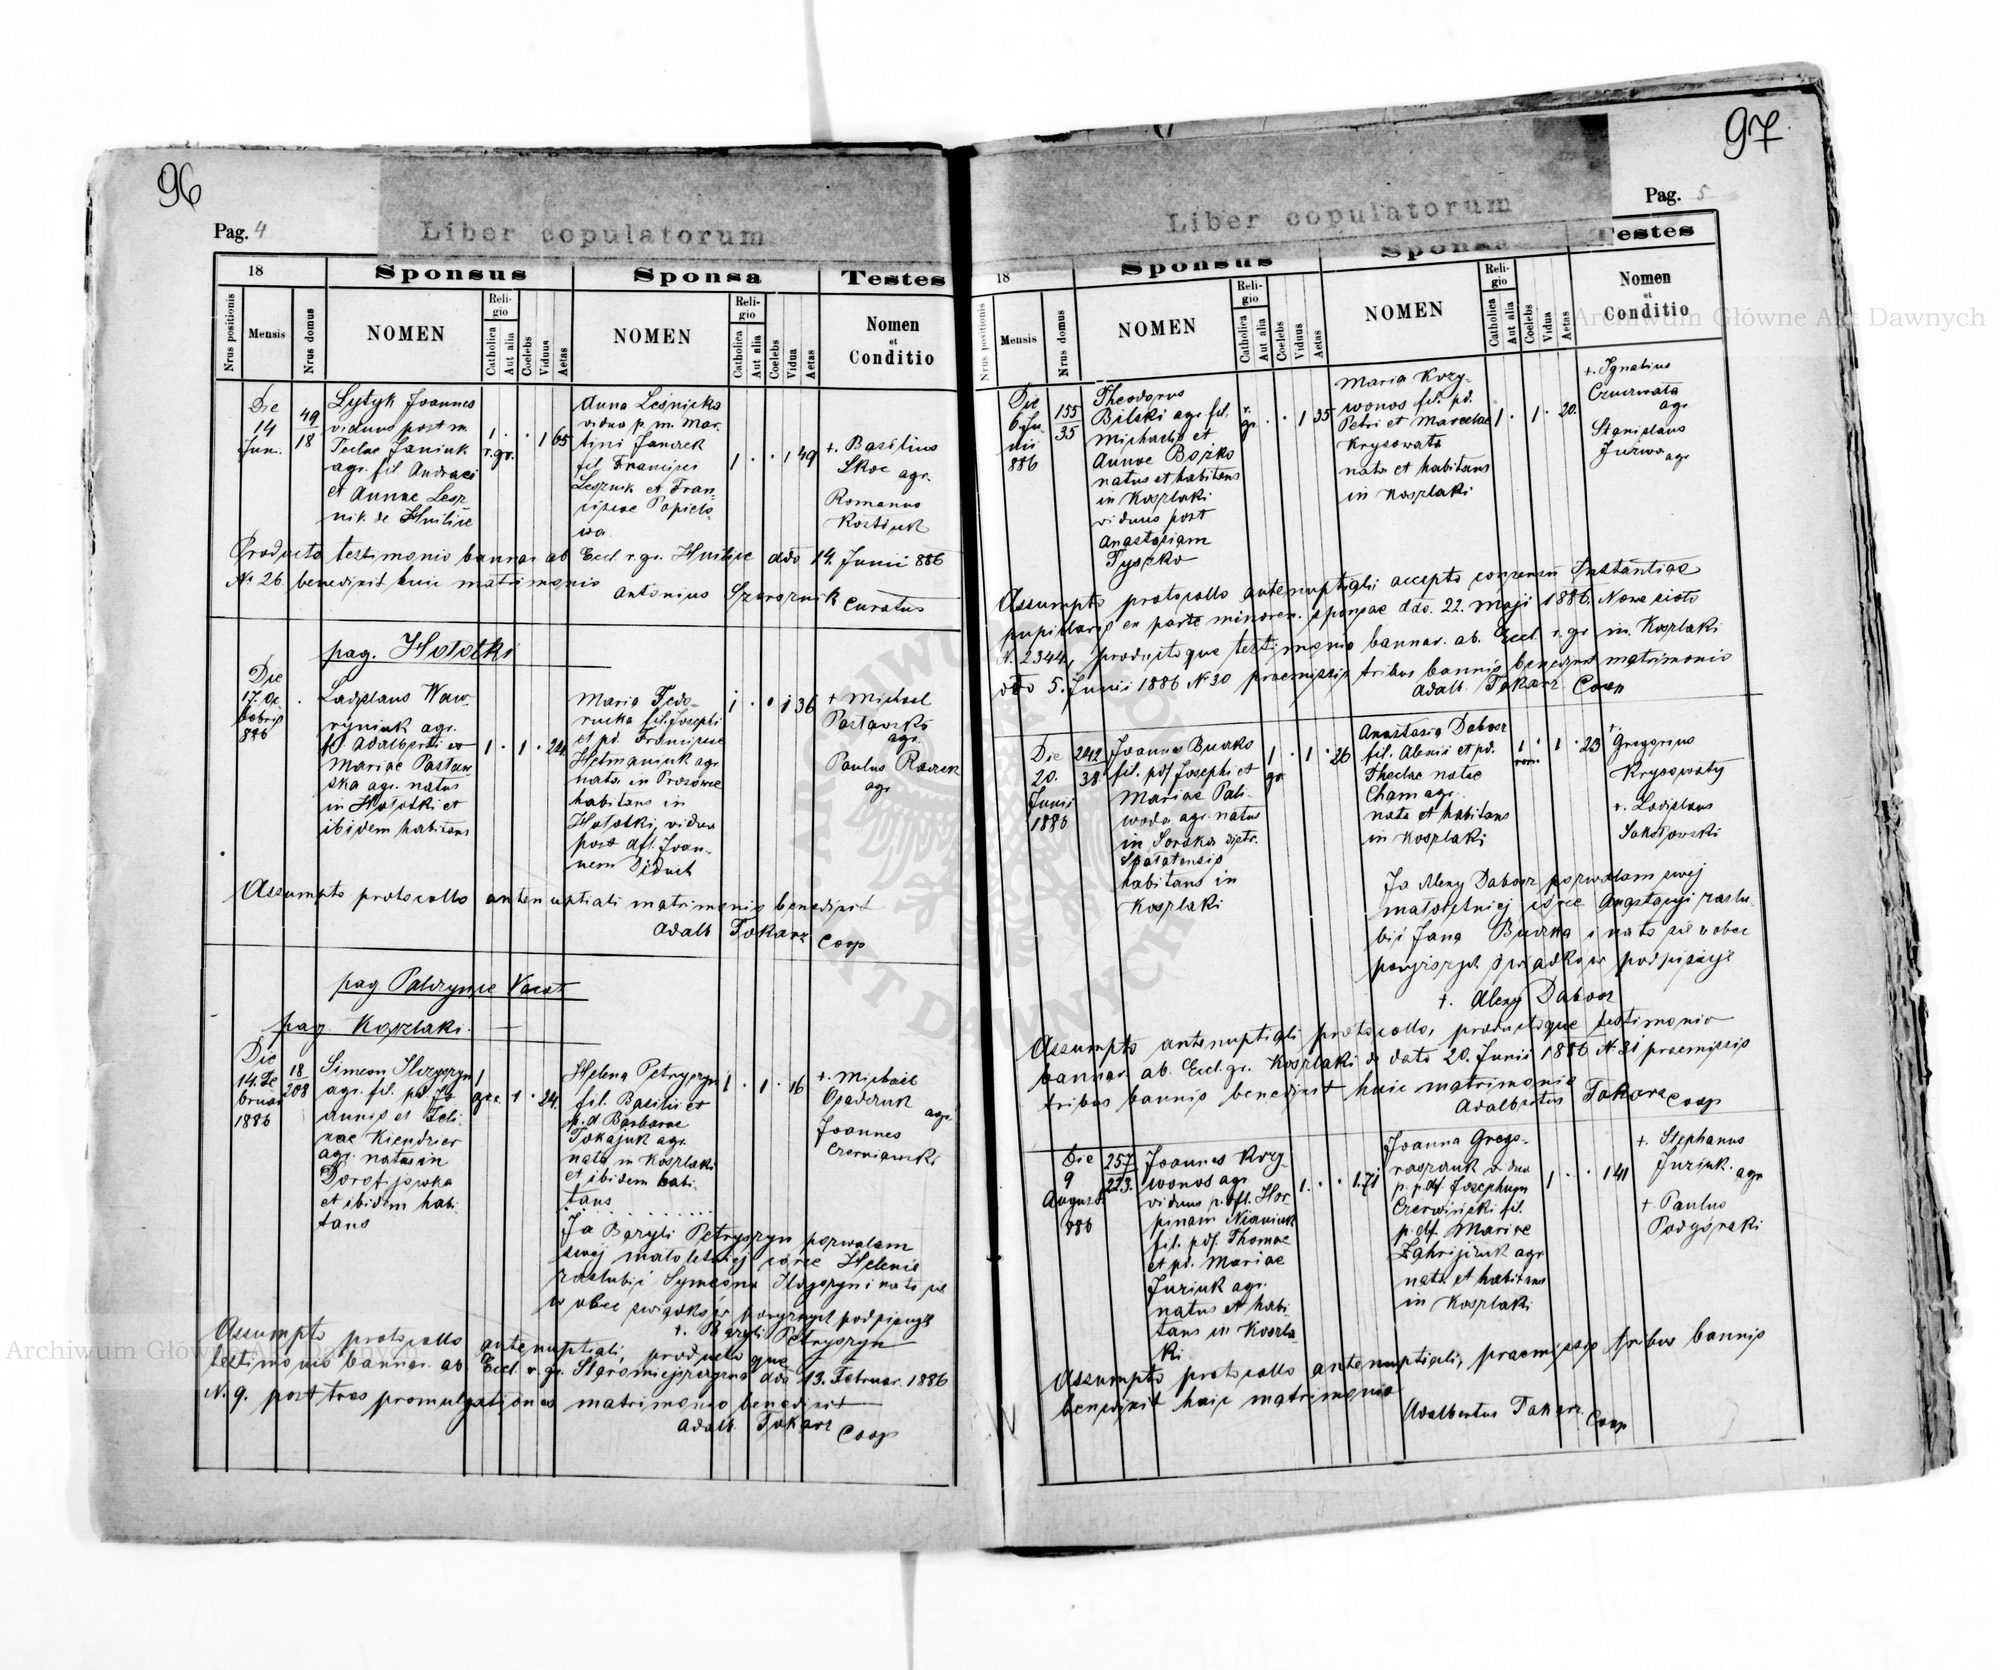 96
Pag. 4
Liber copulatorum
18
Sponsus
Sponsa
Testes
Nrus positionis
Mensis
Nrus domus
NOMEN
Religio
Catholica
Aut alia
Coelebs
Viduus
Aetas
NOMEN
Religio
Catholica
Aut alia
Coelebs
Vidua
Aetas
Nomen
et
Conditio
Die
14
Juni.
49
18
Lytyk Joannes
viduus post m.
Teclae Janiuk
agr. fil Andreae
et Annae Lesz-
nik de Hnilice
1
r. gr.
1 65
Anna Leśnicka
vidua p. m. Mar-
tini Janczek
fil Francisci
Lesznik et Fran-
ciscae Papielo-
wa
1 . . 1 49
+. Basilius
Skoc agr.
Romanus
Kostiuk
Producto testimonio bannar ab Eccl. r. gr. Hnilice ddo 14. Junii 886
N. 26. benedixit huic matrimonio
Antonius
Curatus
pag. Hołotki
Die
17. Oc-
tobris
886
Ladislaus Waw-
ryniuk agr.
fil Adalberti et
Mariae Pastaw-
ska agr. natus
in Hołotki et
ibidem habitans
1 . 1 . 24
Maria Fedo-
rucka fil. Josephi
et pd. Franciscae
Hetmaniuk agr
nata in Prosowce
habitans in
Hołotki, vidua
post dft. Joan-
nem Diduch
1 . . 1 36
+ Michael
Pastawski
agr.
Paulus Raczek
agr
Assumpto protocollo antenuptiali matrimonio benedixit
Adalb Tokarz Coop
pag. Palczynce Vacat
pag. Koszlaki.
Die
14. Fe
bruar
1886
18
208
Simeon Hryszyn
agr. fil. pd. Jo
annis et Teli-
nae Kiendzier
agr. natus in
Dorofijowka
et ibidem habi-
tans
1
gr.
1 . 24.
Helena Petryszyn
fil. Basilii et
p. d Barbarae
Tokajuk agr.
nata in Koszlaki
et ibidem habi-
tans
1 . 1 . 16
+. Michael
Osadczuk
agr.
Joannes
Czerniawski
Ja Bazyli Petryszyn pozwalam
swej małoletniej córce Helenie
zaślubić Symeona Hryszyn i na to się
w obec swiadków powyższych podpisuję
+. Bazyli Petryszyn
Assumpto protocollo antenuptiali, productoque
testimonio bannar. ab Eccl. r. gr. Staromiejszczyzna ddo 13. Februar. 1886
N. 9. post tres promulgationes matrimonio benedixit
Adalb. Tokarz Coop
97
Pag. 5
Liber copulatorum
18
Sponsus
Sponsa
Testes
Nrus positionis
Mensis
Nrus domus
NOMEN
Religio
Catholica
Aut alia
Coelebs
Viduus
Aetas
NOMEN
Religio
Catholica
Aut alia
Coelebs
Vidua
Aetas
Nomen
et
Conditio
Die
6 Ju-
nii
886
155
35
Theodorus
Bilski agr. fil.
Michaelis et
Annae Bozko
natus et habitans
in Koszlaki
viduus post
Anastasiam
Tyszko
r.
gr.
. . 1 35
Maria Krzy-
wonos fil. pd.
Petri et Marcelae
Krysowata
nata et habitans
in Koszlaki
1 . 1 . 20.
+. Ignatius
Czuczwata
agr
Stanislaus
Jurwa agr
Assumpto protocollo antenuptiali accepto consensu Instantiae
pupillaris ex parte minoren. sponsae ddo. 22. Maji 1886. Nowesioło
N. 2344, productoque testimonio bannar. ab. Eccl. r. gr. in. Koszlaki
ddo 5. Junii 1886 N 30 praemissis tribus bannis benedixit matrimonio
Adalb. Tokarz Coop
Die
20.
Junii
1886
242
38
Joannes Buczko
fil. pdf Josephi et
Mariae Pali-
woda agr. natus
in Soroka distr.
Skałatensis
habitans in
Koszlaki
1
gr.
1 . 26
Anastasia Dabosz
fil. Alexii et pd.
Theclae natae
Cham agr.
nata et habitans
in Koszlaki
1
rom.
1 . 23
+.
Gregorius
Krysowaty
+. Ladislaus
Sokołowski
Ja Alexy Dabosz pozwalam swej
małoletniej córce Anastazyi zaślu-
bić Jana Buczka i na to się w obec
powyższych świadków podpisuję
+. Alexy Dabosz
Assumpto antenuptiali protocollo, productoque testimonio
bannar. ab. Eccl. gr. Koszlaki de dato 20. Junii 1886 N 31 praemissis
tribus bannis benedixit huic matrimonio
Adalbertus Tokarz Coop
Die
9
Augusti
886
257
223.
Joannes Krzy-
wonos agr.
viduus p. dft. Hor
pinam Nianiuk
fil. pdf. Thomae
et pd. Mariae
Juriuk agr.
natus et habi
tans in Koszla-
ki
1. . . 1. 71
Joanna Grego-
raszczuk vidua
p. pdf. Josephum
Czerwiński fil.
p. df. Mariae
Zahrijczuk agr
nata et habitans
in Koszlaki
1 . . 1 41
+. Stephanus
Juriuk. agr
+. Paulus
Podgórski
Assumpto protocollo antenuptiali, praemissis tribus bannis
benedixit huic matrimonio
Adalbertus Tokarz. Coop
Archiwum Główne Akt Dawnych
Archiwum Główne Akt Dawnych
ARCHIWUM GŁÓWNE AKT DAWNYCH